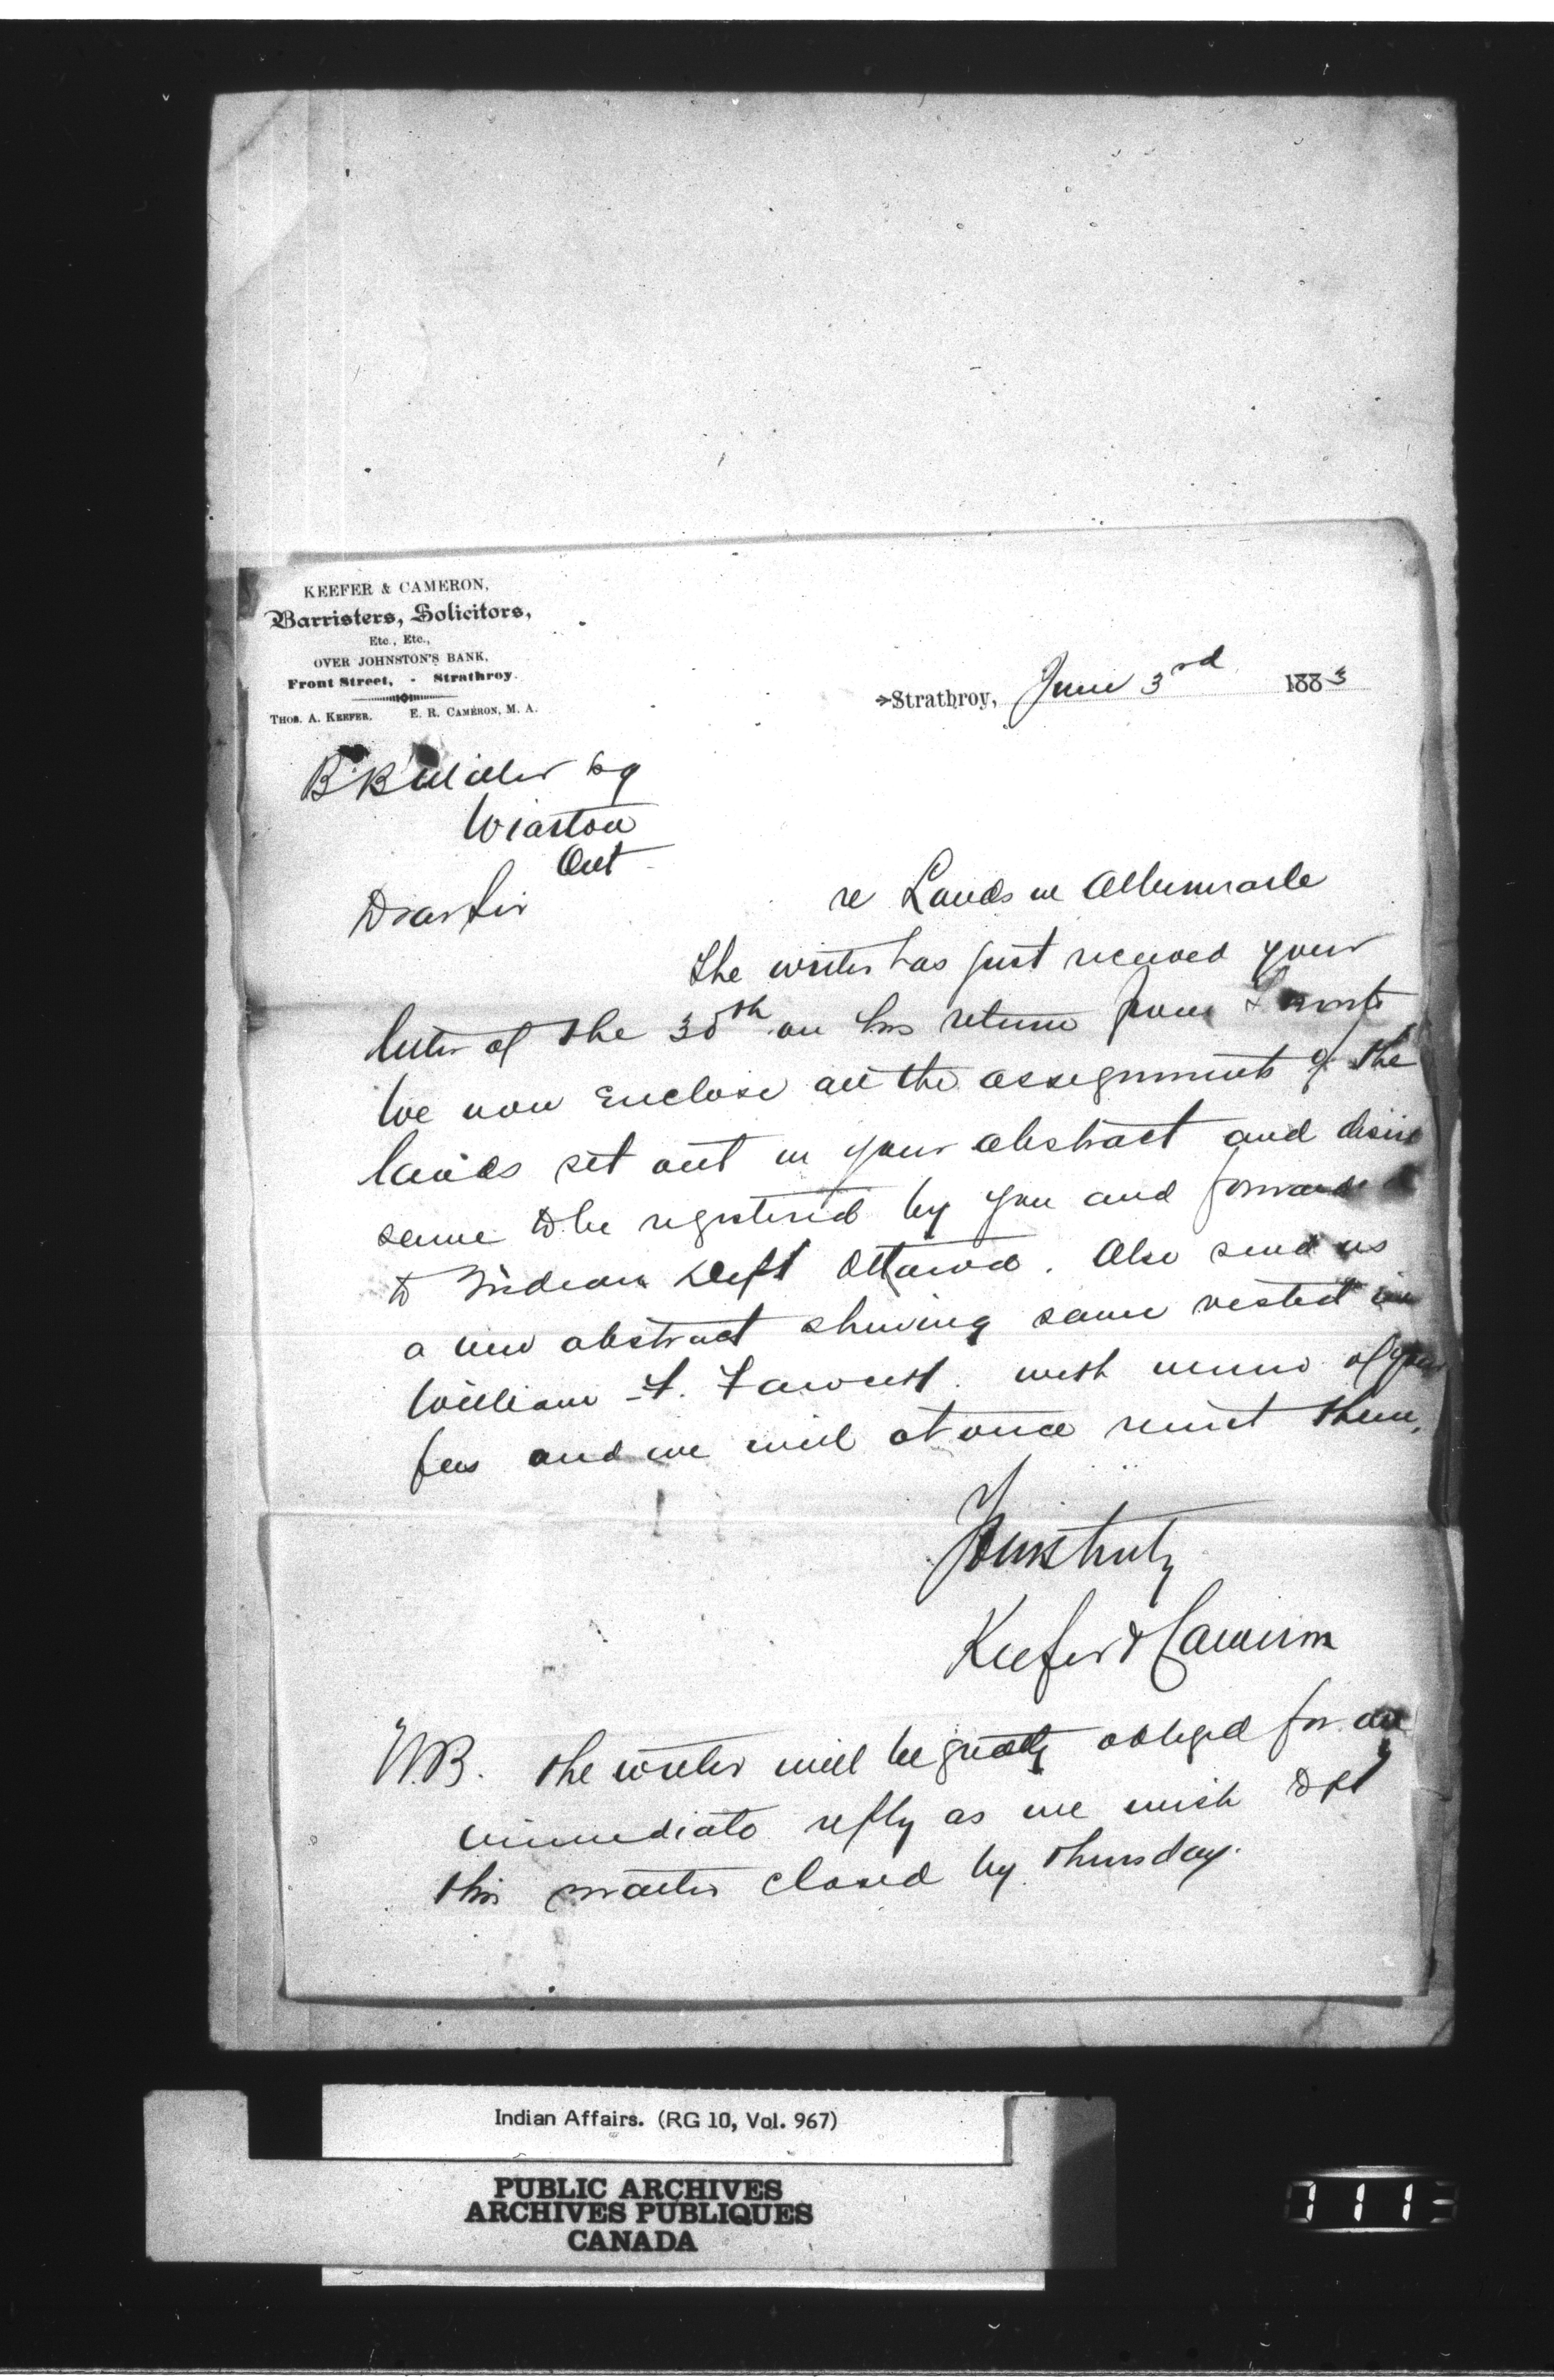 KEEFER & CAMERON,
Barristers, Solicitors,
Etc., Etc.,
OVER JOHNSTON'S BANK,
Front Street, - Strathroy.
THOS. A. KEEFER. E. R. CAMERON, M. A.
Strathroy, June 3rd 1883
B B Miller Esq
Wiarton
Ont
Dear Sir
re Lands in Albemarle
The writer has just received your
letter of the 30th on his return from Toronto
We now enclose all the assignments of the
lands set out in your abstract and desire
same to be registered by you and forwarded
to Indian Dept Ottawa. Also send us
a new abstract shewing same vested in
William F. Fawcett. with memo of your
fees and we will at once remit them.
Yours truly
Keefer & Cameron
N.B. The writer will be greatly obliged for an
immediate reply as we wish to get
this matter closed by Thursday.
Indian Affairs. (RG 10, Vol. 967)
PUBLIC ARCHIVES
ARCHIVES PUBLIQUES
CANADA